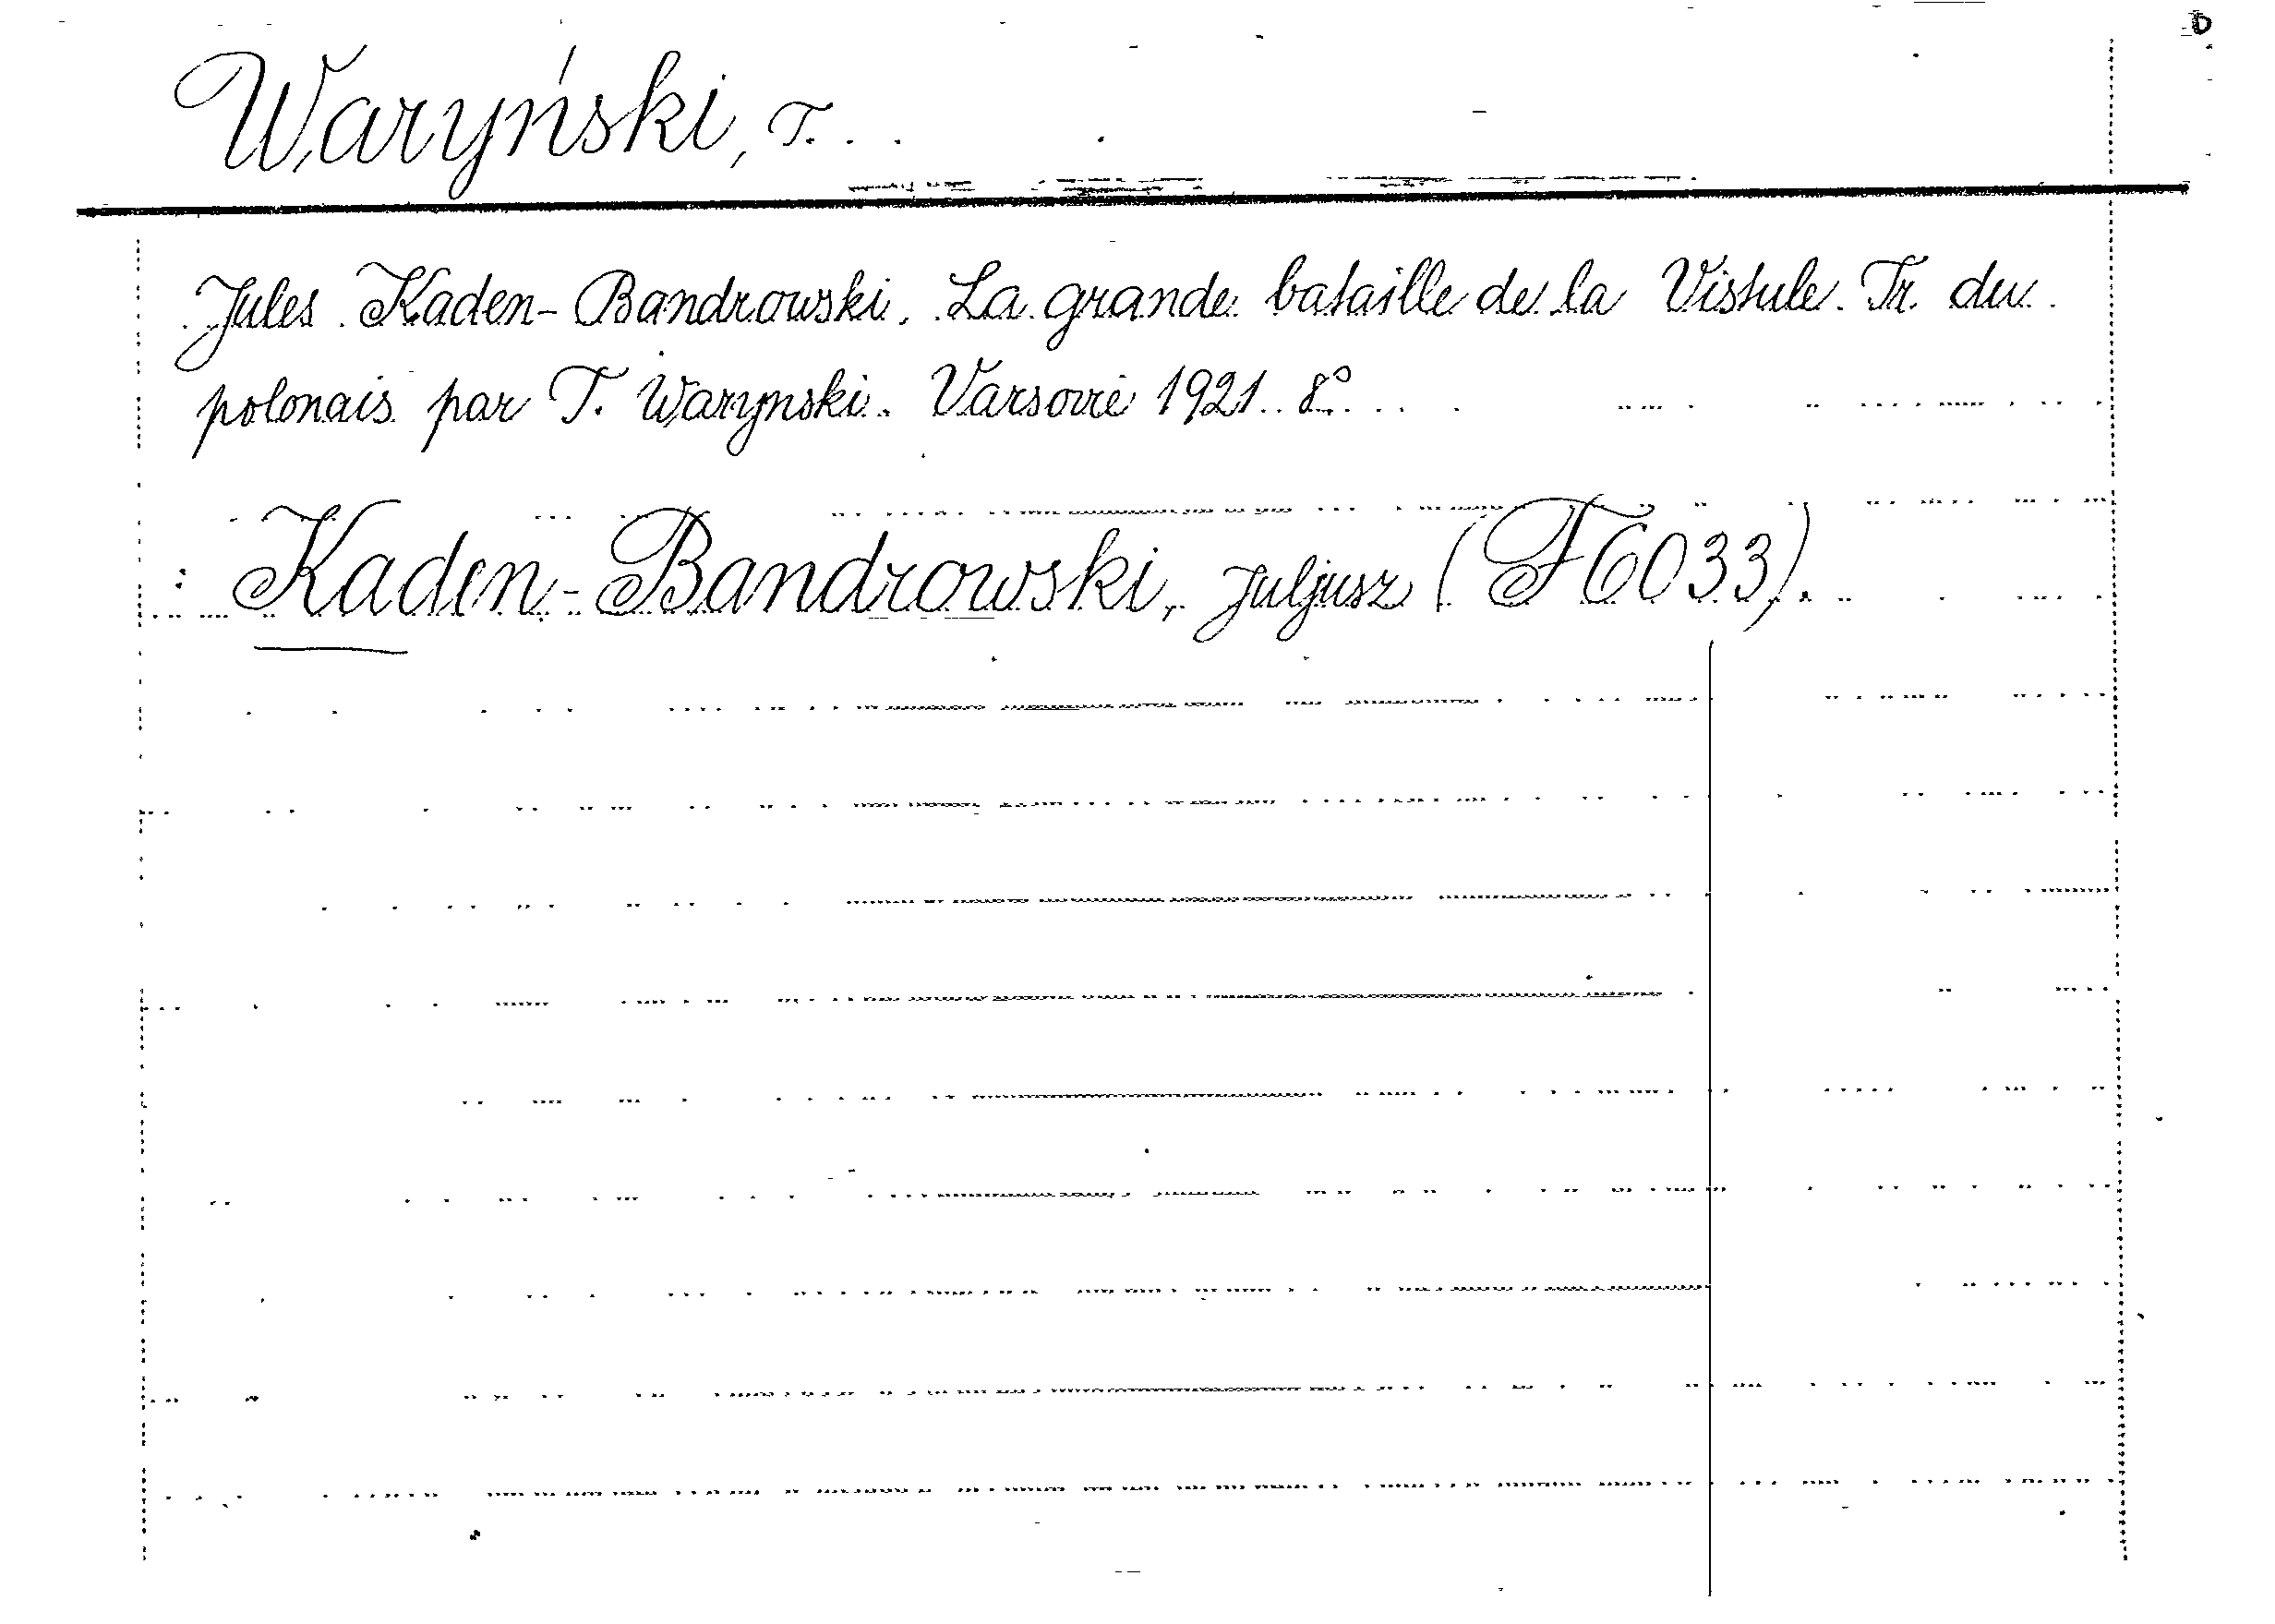 Waryński, T.
Jules Kaden-Bandrowski. La grande bataille de la Vistule. Tr. du
polonais par T. Warynski. Varsovie 1921. 8°.
: Kaden-Bandrowski, Juljusz (F6033).